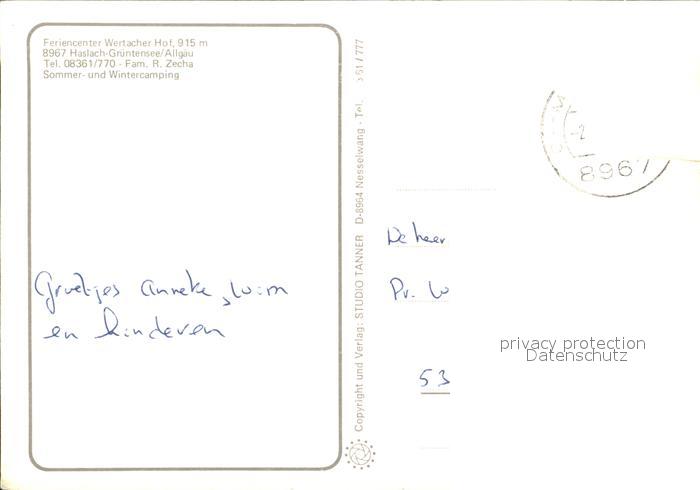 Feriencenter Wertacher Hof, 915 m
8967 Haslach-Grüntensee/Allgäu
Tel. 08361/770 - Fam. R. Zecha
Sommer- und Wintercamping
Groetjes Anneke, Wim
en kinderen
Copyright und Verlag: STUDIO TANNER D-8964 Nesselwang - Tel. 61/777
8967
De heer
Pr. W
53
privacy protection
Datenschutz